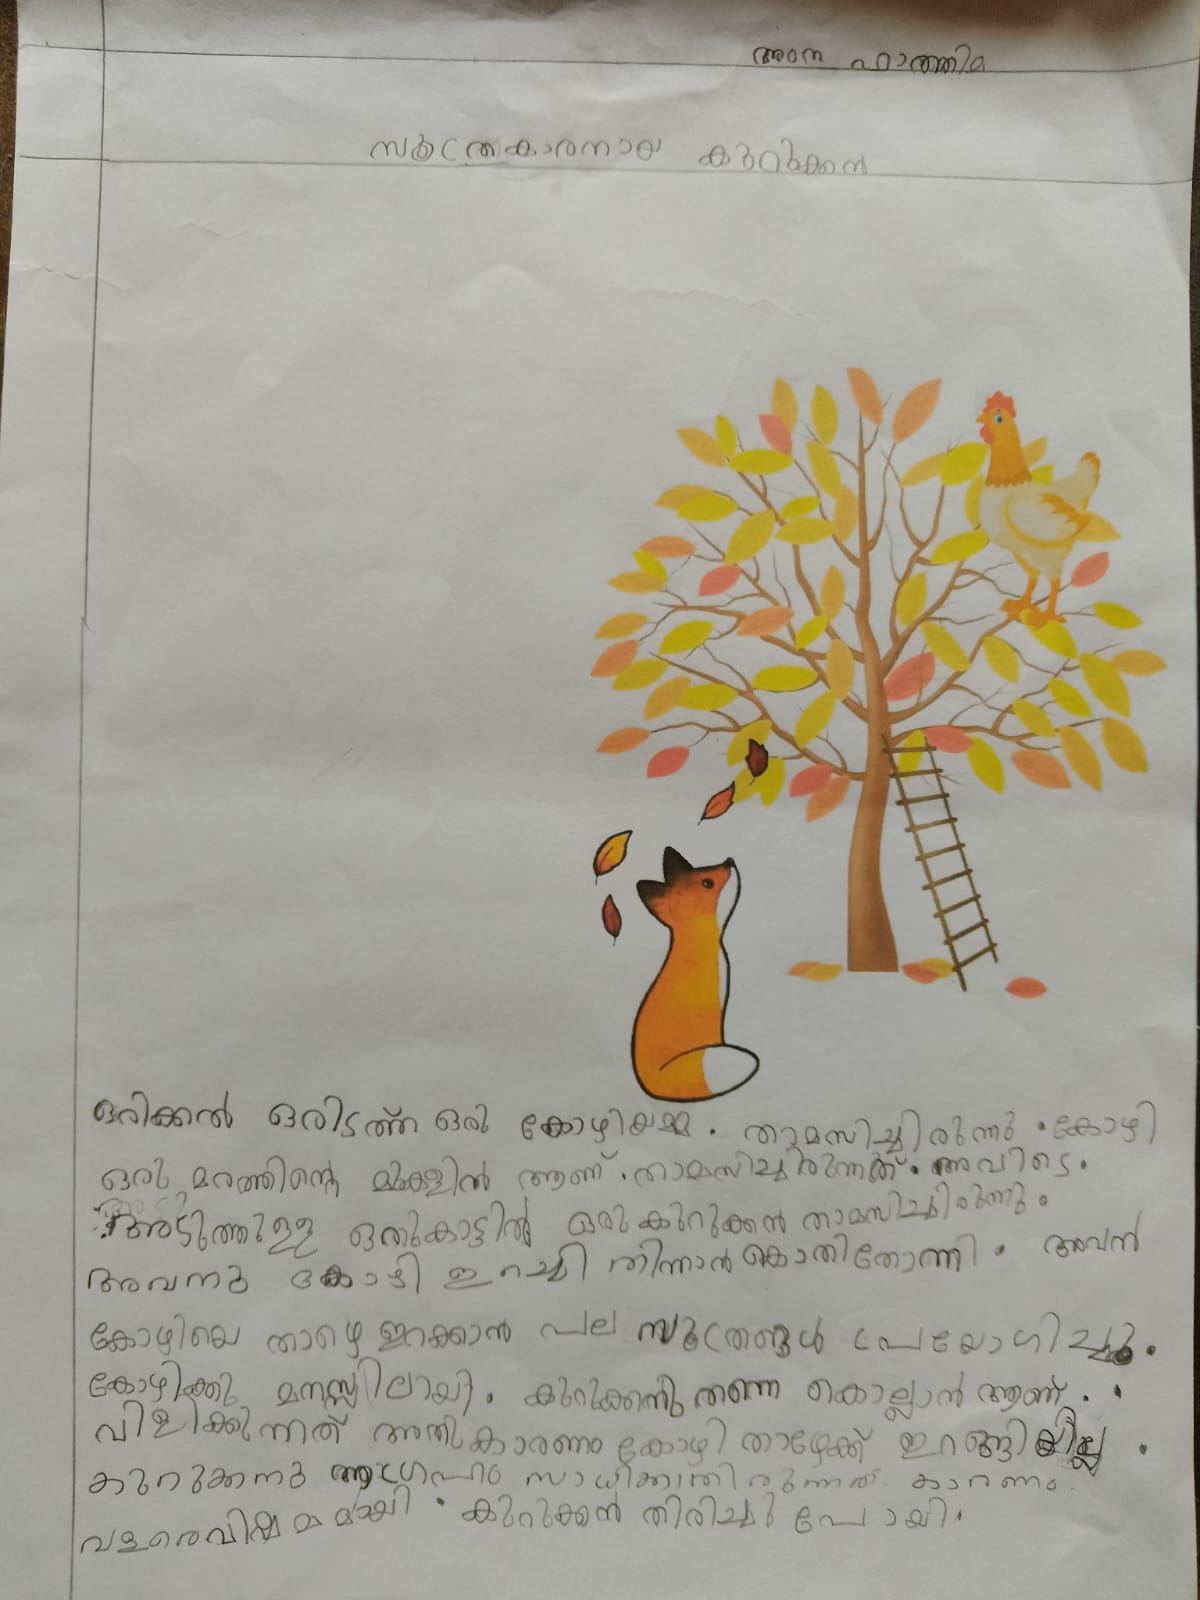 അംന ഫാത്തിമ
സൂത്രകാരനായ കുറുക്കൻ
ഒരിക്കൽ ഒരിടത്ത് ഒരു കോഴിയമ്മ . താമസിച്ചിരുന്നു . കോഴി
ഒരു മരത്തിന്റെ മുകളിൽ ആണ് . താമസിച്ചിരുന്നത് . അവിടെ .
അടുത്തുള്ള ഒരുകാട്ടിൽ ഒരു കുറുക്കൻ താമസിച്ചിരുന്നു .
അവനു കോഴി ഇറച്ചി തിന്നാൻ കൊതിതോന്നി . അവൻ
കോഴിയെ താഴെ ഇറക്കാൻ പല സൂത്രങ്ങൾ പ്രയോഗിച്ചു .
കോഴിക്കു മനസ്സിലായി . കുറുക്കൻ തന്നെ കൊല്ലാൻ ആണ് . .
വിളിക്കുന്നത് അതുകാരണം കോഴി താഴേക്ക് ഇറങ്ങിയില്ല .
കുറുക്കനു ആഗ്രഹം സാധിക്കാതിരുന്നത് കാരണം
വളരെവിഷമമായി . കുറുക്കൻ തിരിച്ചു പോയി .